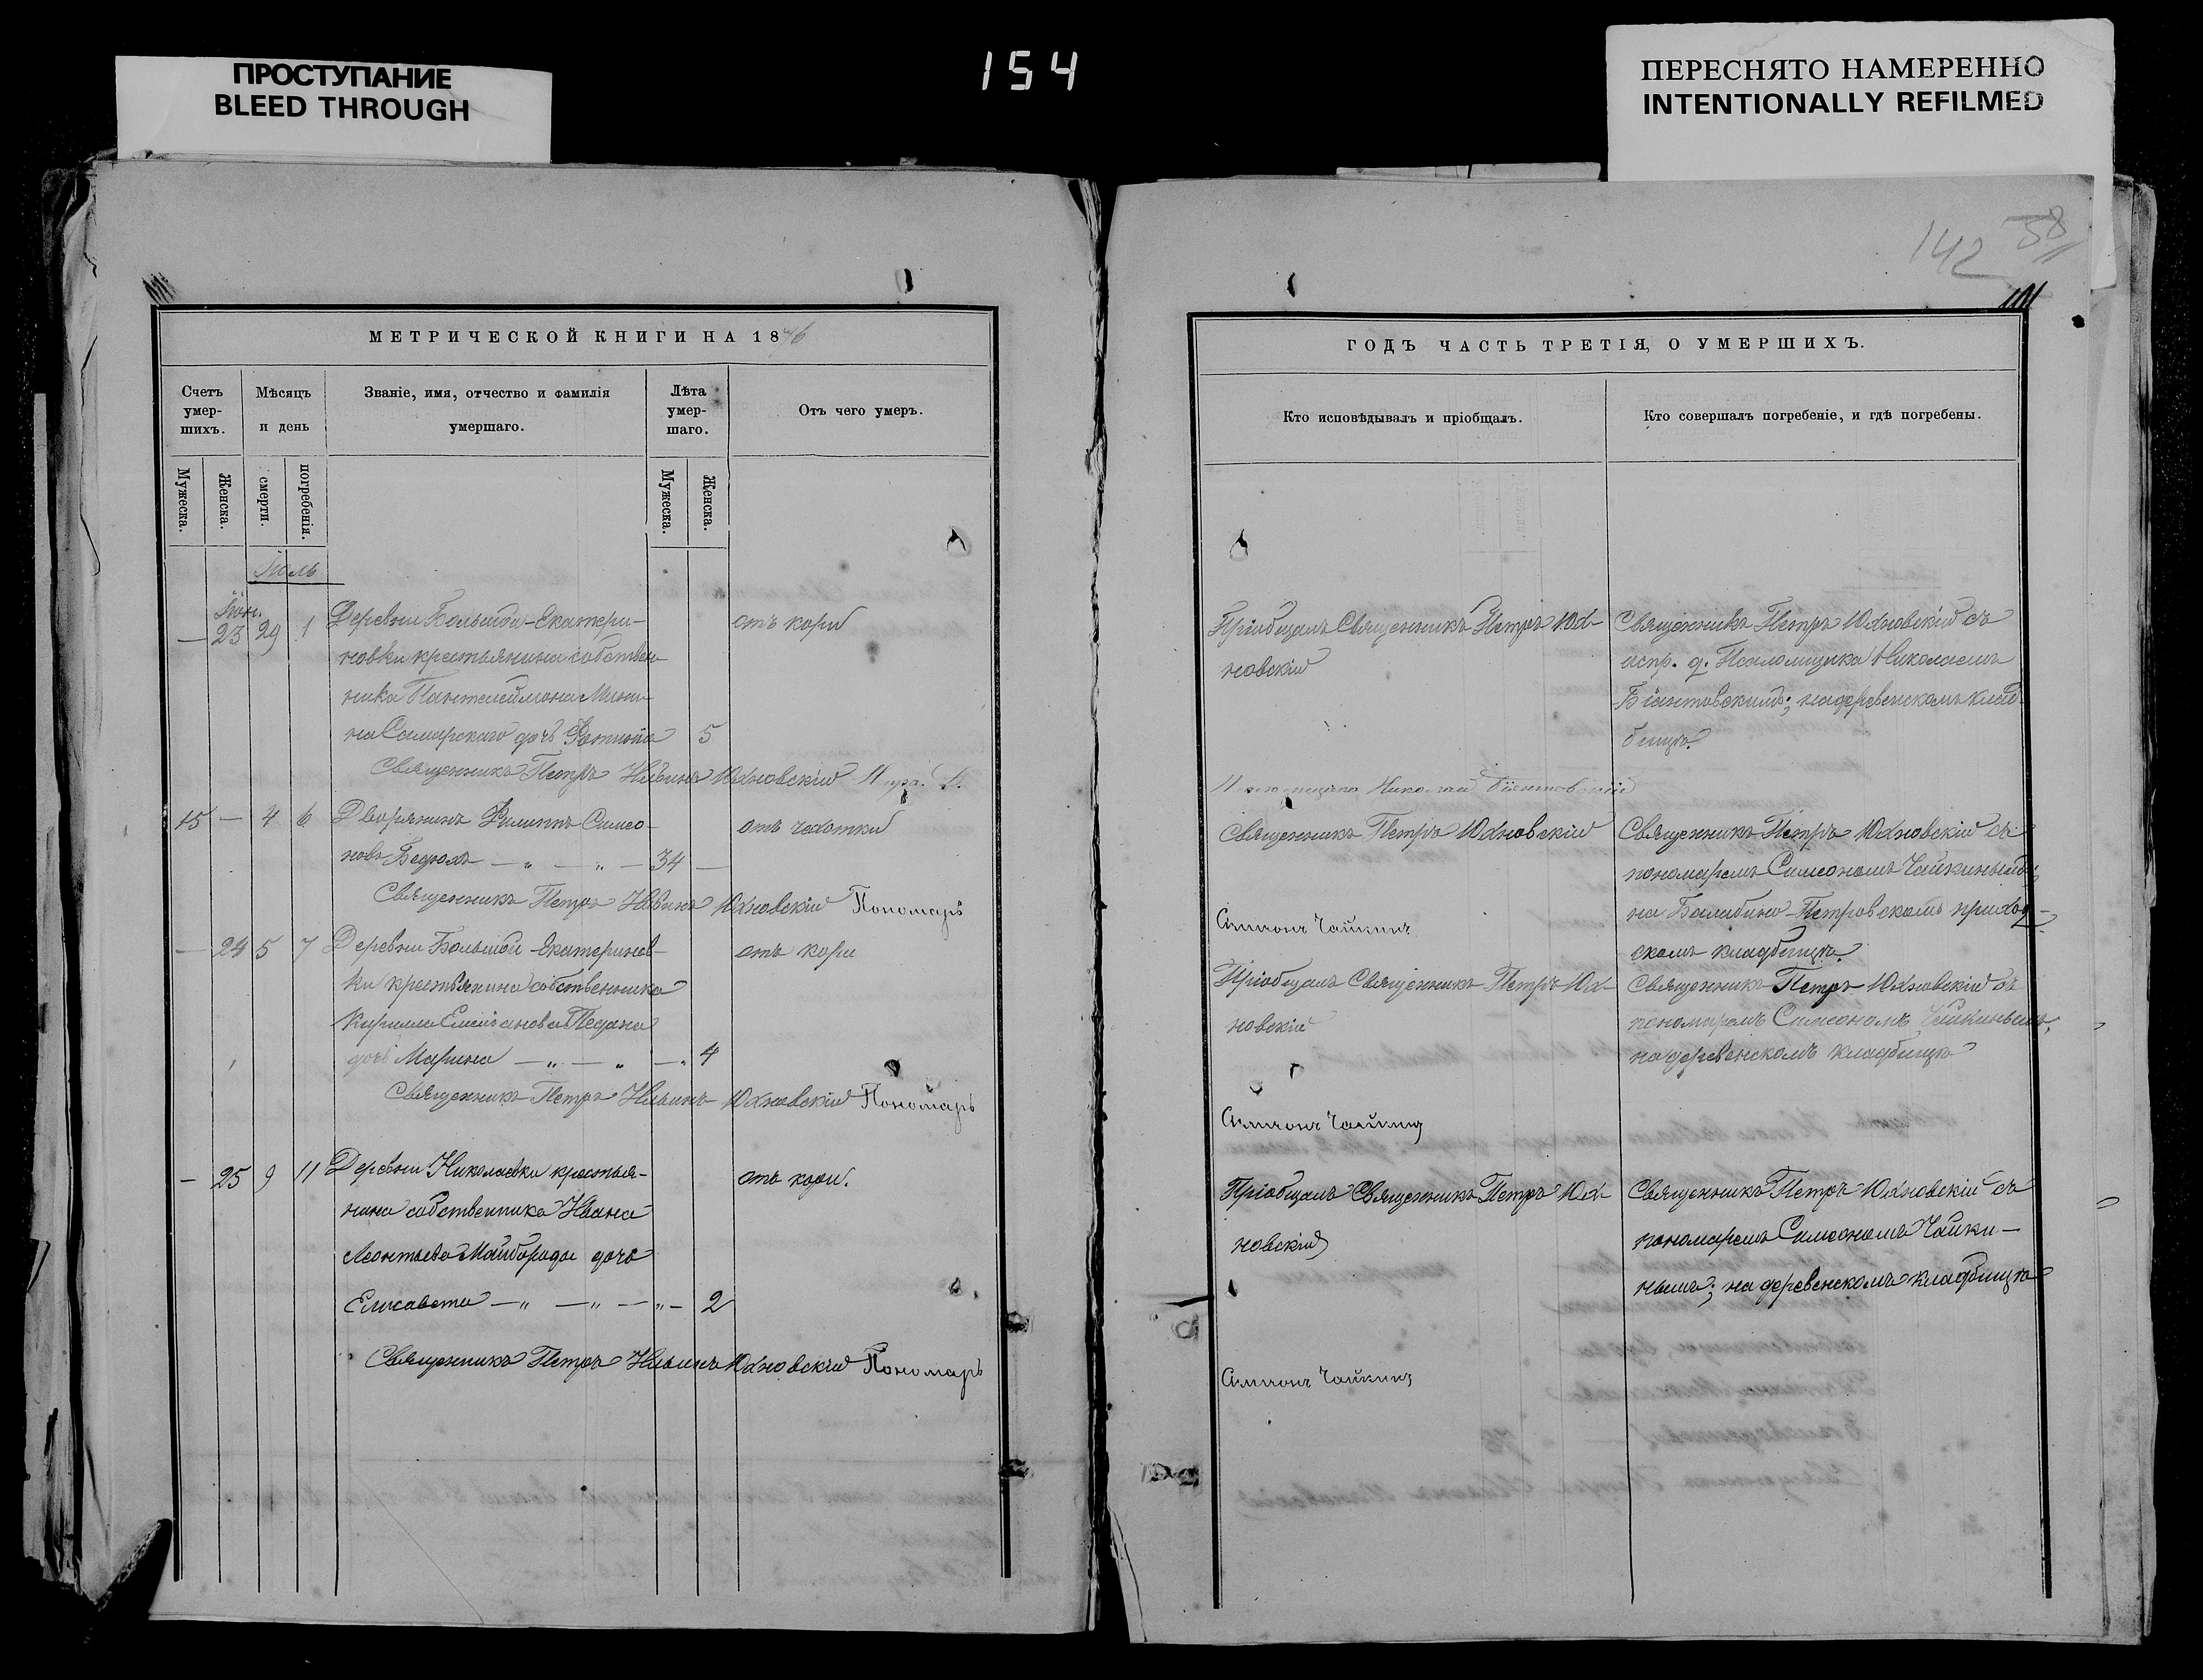 ПРОСТУПАНИЕ
BLEED THROUGH
154
ПЕРЕСНЯТО НАМЕРЕННО
INTENTIONALLY REFILMED
142 58
МЕТРИЧЕСКОЙ КНИГИ НА 1876
Счетъ умер-шихъ.
Мѣсяцъ и день
Званіе, имя, отчество и фамилія умершаго.
Лѣта умер-шаго.
Отъ чего умеръ.
Мужеска.
Женска.
смерти.
погребенія.
Мужеска.
Женска.
Іюль
Іюн.
— 23 29 1 Деревни Большой-Екатери-
новки крестьянина собствен-
ника Пантелеймона Мини-
на Самарскаго дочь Фотинія 5
отъ кори
Священникъ Петръ Ильинъ Юхновскій
15 — 4 6 Дворянинъ Филиппъ Симео-
новъ Бедюхъ — „ — „ — 34 —
отъ чахотки
Священникъ Петръ Ильинъ Юхновскій Пономарь
— 24 5 7 Деревни Большой-Екатеринов-
ки крестьянина собственника
Кирилла Емельянова Педана
дочь Марина — „ — „ — „ 4
отъ кори
Священникъ Петръ Ильинъ Юхновскій Пономарь
— 25 9 11 Деревни Николаевки крестья-
нина собственника Ивана
Леонтьева Майбороды дочь
Елисавета — „ — „ — „ — 2
отъ кори.
Священникъ Петръ Ильинъ Юхновскій Пономарь
ГОДЪ ЧАСТЬ ТРЕТІЯ, О УМЕРШИХЪ.
Кто исповѣдывалъ и пріобщалъ.
Кто совершалъ погребеніе, и гдѣ погребены.
Пріобщалъ Священникъ Петръ Юх-
новскій
Священникъ Петръ Юхновскій съ
испр. д. Псаломщика Николаемъ
Біантовскимъ; на деревенскомъ клад-
бищѣ.
Псаломщика Николай Біантовскій
Священникъ Петръ Юхновскій
Священникъ Петръ Юхновскій съ
пономаремъ Симеономъ Чайкинымъ;
на Балабино-Петровскомъ приход-
скомъ кладбищѣ.
Симеонъ Чайкинъ
Пріобщалъ Священникъ Петръ Юх-
новскій
Священникъ Петръ Юхновскій съ
пономаремъ Симеономъ Чайкинымъ;
на деревенскомъ кладбищѣ
Симеонъ Чайкинъ
Пріобщалъ Священникъ Петръ Юх-
новскій
Священникъ Петръ Юхновскій съ
пономаремъ Симеономъ Чайки-
нымъ; на деревенскомъ кладбищѣ
Симеонъ Чайкинъ